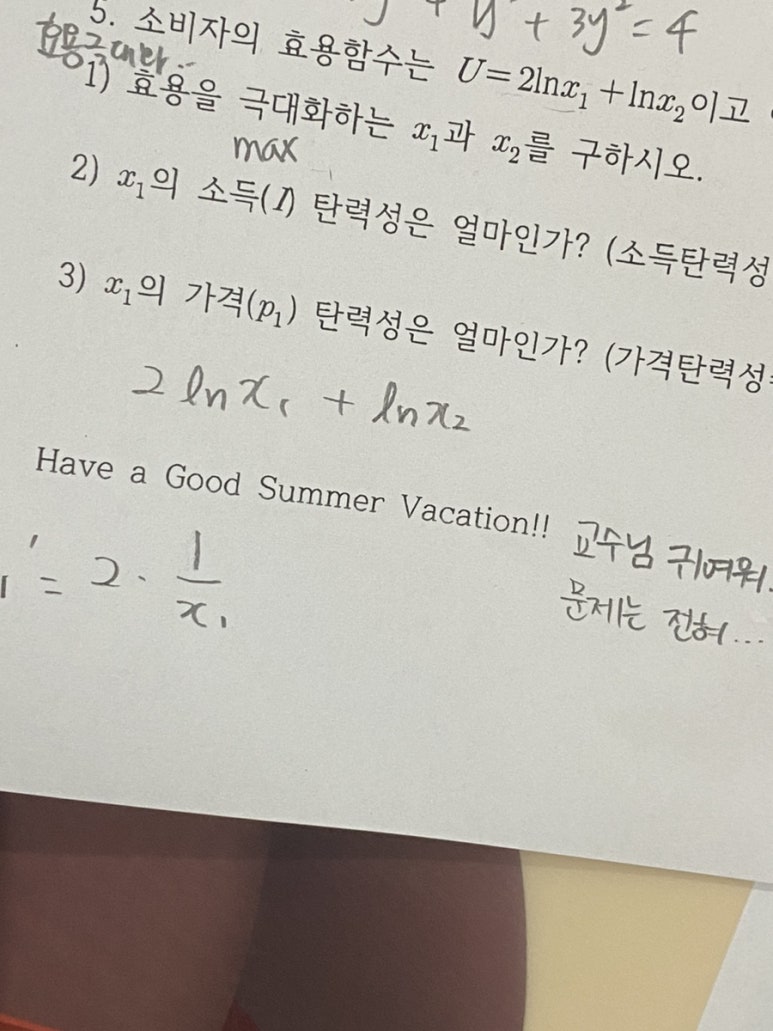 y + 3y² = 4
5. 소비자의 효용함수는 U=2lnx₁+lnx₂이고
효용극대화
1) 효용을 극대화하는 x₁과 x₂를 구하시오.
max
2) x₁의 소득(I) 탄력성은 얼마인가? (소득탄력성
3) x₁의 가격(p₁) 탄력성은 얼마인가? (가격탄력성
2 ln x₁ + ln x₂
Have a Good Summer Vacation!!
교수님 귀여워..
문제는 전혀...
' = 2 · 1/x₁